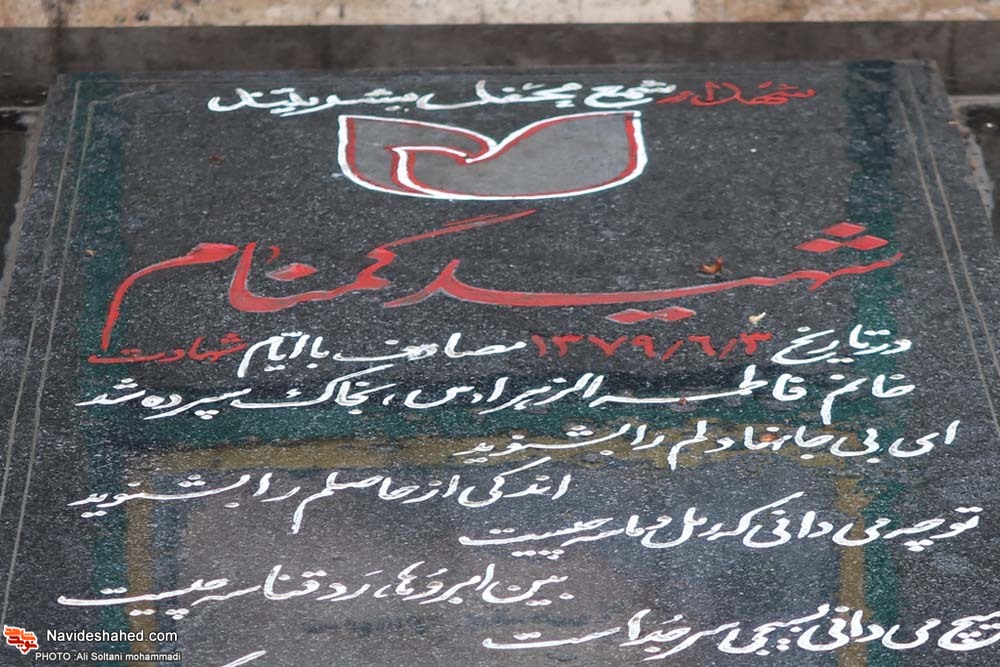 شهدا در شمع محفل بشریتند
شهید گمنام
در تاریخ ۱۳۷۹/۶/۳ مصادف با ایام شهادت
خانم فاطمه الزهرا (س)، بخاک سپرده شد
ای بی جانها دلم را بشنوید
اندکی از حاصلم را بشنوید
تو چه می دانی که رمل و ماسه چیست
بین ابروها، رد قناسه چیست
هیچ می دانی بسیجی سر جداست
Navideshahed.com
PHOTO :Ali Soltani mohammadi